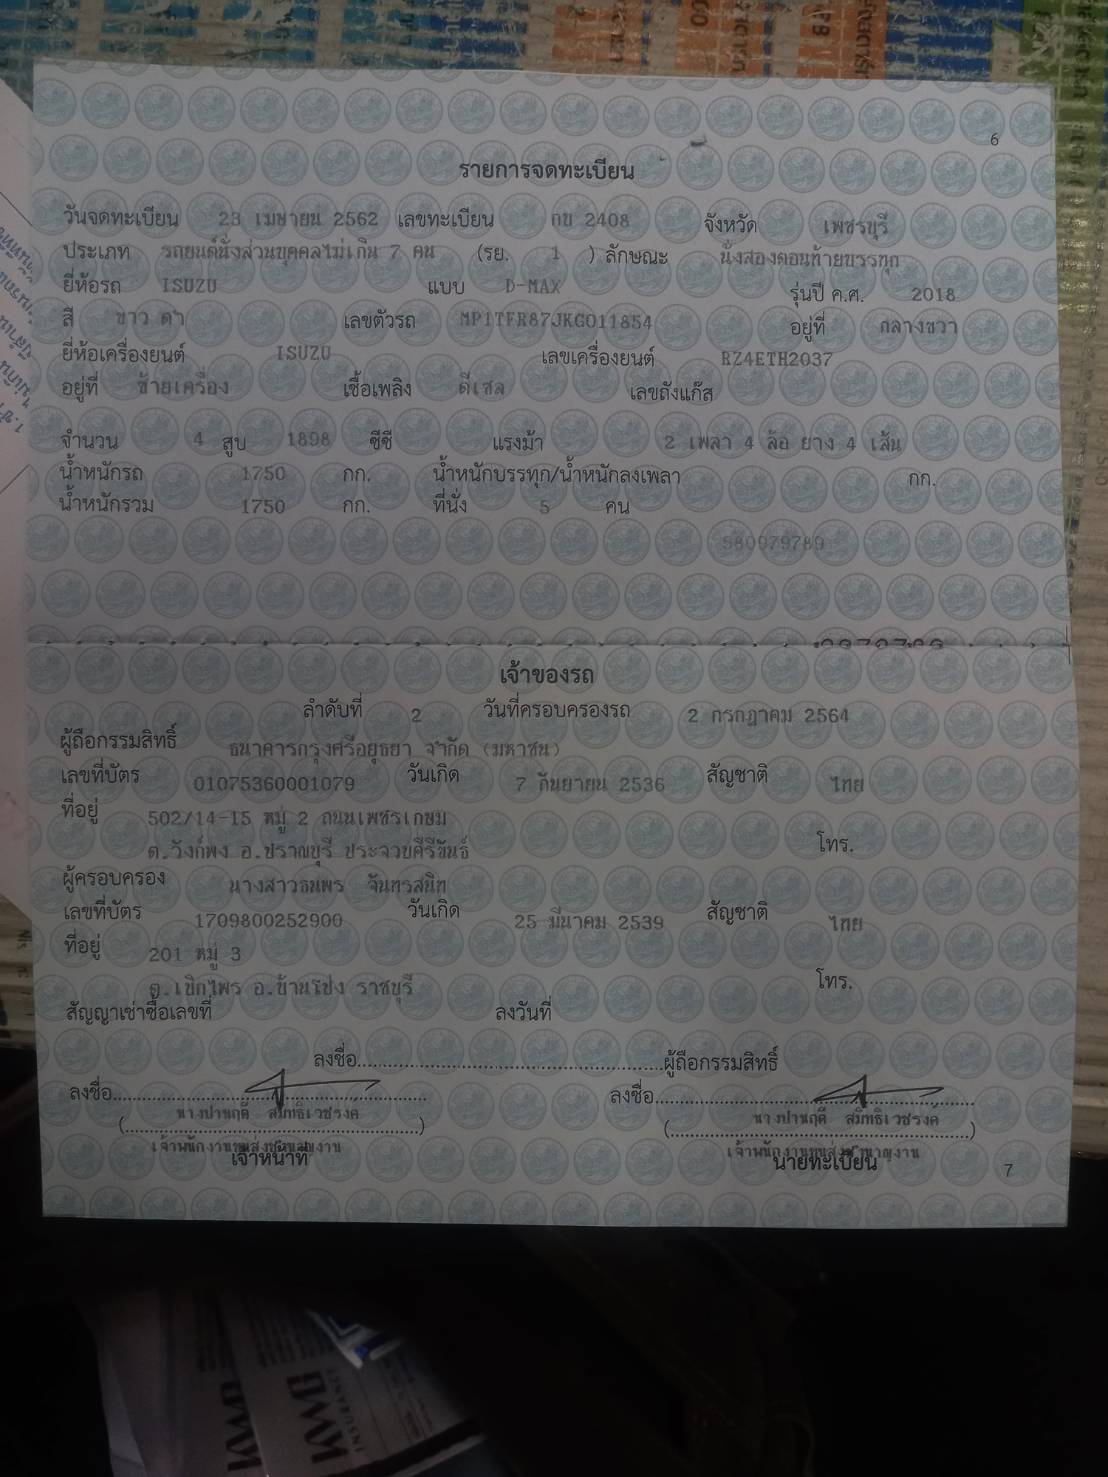 6
รายการจดทะเบียน
วันจดทะเบียน 23 เมษายน 2562 เลขทะเบียน กบ 2408 จังหวัด เพชรบุรี
ประเภท รถยนต์นั่งส่วนบุคคลไม่เกิน 7 คน (รย. 1 ) ลักษณะ นั่งสองตอนท้ายบรรทุก
ยี่ห้อรถ ISUZU แบบ D-MAX รุ่นปี ค.ศ. 2018
สี ขาว ดำ เลขตัวรถ MP1TFR87JKG011854 อยู่ที่ กลางขวา
ยี่ห้อเครื่องยนต์ ISUZU เลขเครื่องยนต์ RZ4ETH2037
อยู่ที่ ซ้ายเครื่อง เชื้อเพลิง ดีเซล เลขถังแก๊ส
จำนวน 4 สูบ 1898 ซีซี แรงม้า 2 เพลา 4 ล้อ ยาง 4 เส้น
น้ำหนักรถ 1750 กก. น้ำหนักบรรทุก/น้ำหนักลงเพลา กก.
น้ำหนักรวม 1750 กก. ที่นั่ง 5 คน
580979789
เจ้าของรถ
ลำดับที่ 2 วันที่ครอบครองรถ 2 กรกฎาคม 2564
ผู้ถือกรรมสิทธิ์ ธนาคารกรุงศรีอยุธยา จำกัด (มหาชน)
เลขที่บัตร 01075360001079 วันเกิด 7 กันยายน 2536 สัญชาติ ไทย
ที่อยู่ 502/14-15 หมู่ 2 ถนนเพชรเกษม
ต.วังก์พง อ.ปราณบุรี ประจวบคีรีขันธ์ โทร.
ผู้ครอบครอง นางสาวธนพร จันทรสนิท
เลขที่บัตร 1709800252900 วันเกิด 25 มีนาคม 2539 สัญชาติ ไทย
ที่อยู่ 201 หมู่ 3
ต.เบิกไพร อ.บ้านโป่ง ราชบุรี โทร.
สัญญาเช่าซื้อเลขที่ ลงวันที่
ลงชื่อ ผู้ถือกรรมสิทธิ์
ลงชื่อ ลงชื่อ
นางปานฤดี สมิทธิเวชรงค์ นางปานฤดี สมิทธิเวชรงค์
เจ้าพนักงานขนส่งชำนาญงาน เจ้าพนักงานขนส่งชำนาญงาน
เจ้าหน้าที่ นายทะเบียน
7